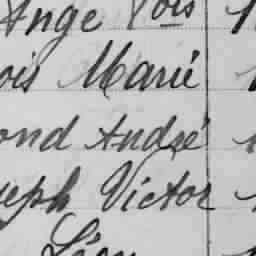 Ange Fois
ois Marie
ond André
seph Victor
Léon